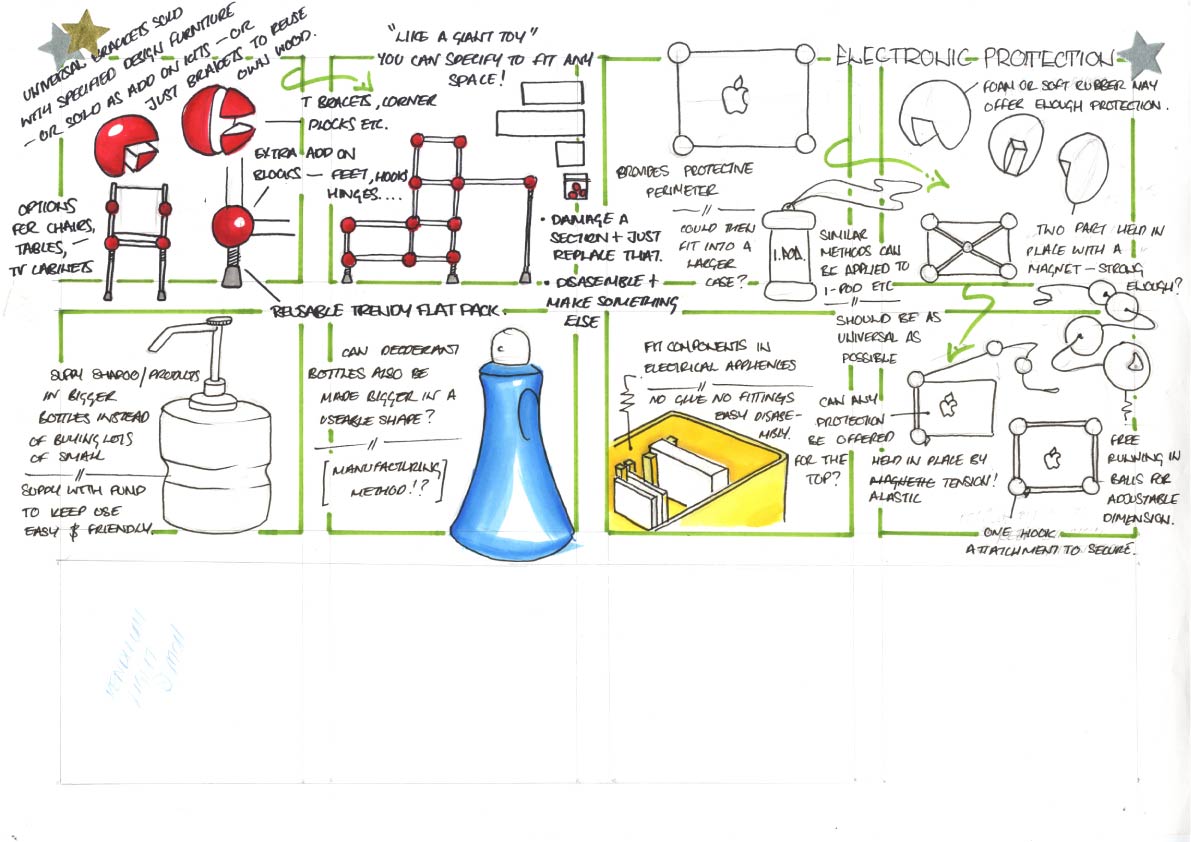 UNIVERSAL BRACKETS SOLD
WITH SPECIFIED DESIGN FURNITURE
– OR SOLD AS ADD ON KITS – OR
JUST BRAKETS TO REUSE
OWN WOOD.
"LIKE A GIANT TOY"
YOU CAN SPECIFY TO FIT ANY
SPACE!
T BRACETS, CORNER
BLOCKS ETC.
EXTRA ADD ON
BLOCKS – FEET, HOOKS
HINGES....
OPTIONS
FOR CHAIRS,
TABLES, –
TV CABINETS
• DAMAGE A
SECTION + JUST
REPLACE THAT.
• DISASEMBLE +
MAKE SOMETHING
ELSE
REUSABLE TRENDY FLAT PACK
ELECTRONIC PROTECTION
PROVIDES PROTECTIVE
PERIMETER
//
COULD THEN
FIT INTO A
LARGER
CASE?
SIMILAR
METHODS CAN
BE APPLIED TO
I-POD ETC
//
SHOULD BE AS
UNIVERSAL AS
POSSIBLE
FOAM OR SOFT RUBBER MAY
OFFER ENOUGH PROTECTION.
TWO PART HELD IN
PLACE WITH A
MAGNET – STRONG
ENOUGH?
SUPPLY SHAPOO/PRODUCTS
IN BIGGER
BOTTLES INSTEAD
OF BUYING LOTS
OF SMALL
//
SUPPLY WITH PUMP
TO KEEP USE
EASY & FRIENDLY.
CAN DEODERANT
BOTTLES ALSO BE
MADE BIGGER IN A
USEABLE SHAPE?
//
[MANUFACTURING
METHOD!?]
FIT COMPONENTS IN
ELECTRICAL APPLIENCES
//
NO GLUE NO FITTINGS
EASY DISASE-
MBLY.
CAN ANY
PROTECTION
BE OFFERED
FOR THE
TOP?
HELD IN PLACE BY
MAGNETIC TENSION!
ALASTIC
FREE
RUNNING IN
BALLS FOR
ADJUSTABLE
DIMENSION.
ONE HOOK
ATTATCHMENT TO SECURE.